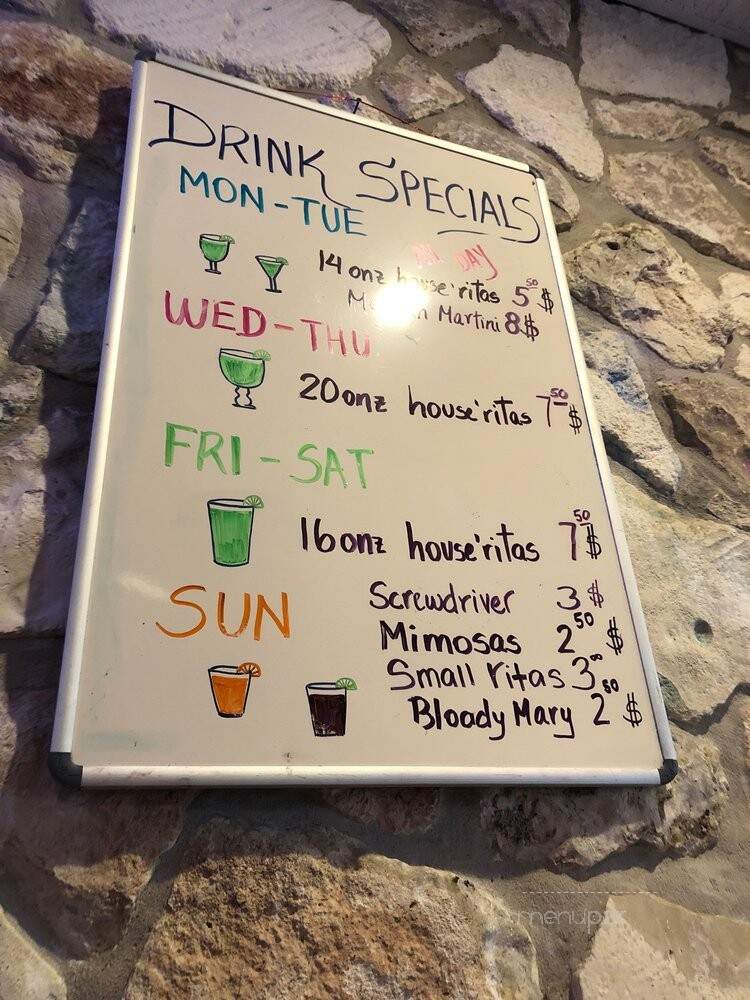 DRINK SPECIALS
MON-TUE
ALL DAY
14 onz house'ritas 5⁵⁰ $
Martini 8$
WED-THU
20onz house'ritas 7⁵⁰ $
FRI-SAT
16onz house'ritas 7⁵⁰ $
SUN
Screwdriver 3 $
Mimosas 2⁵⁰ $
Small ritas 3⁰⁰
Bloody Mary 2⁵⁰ $
menupix